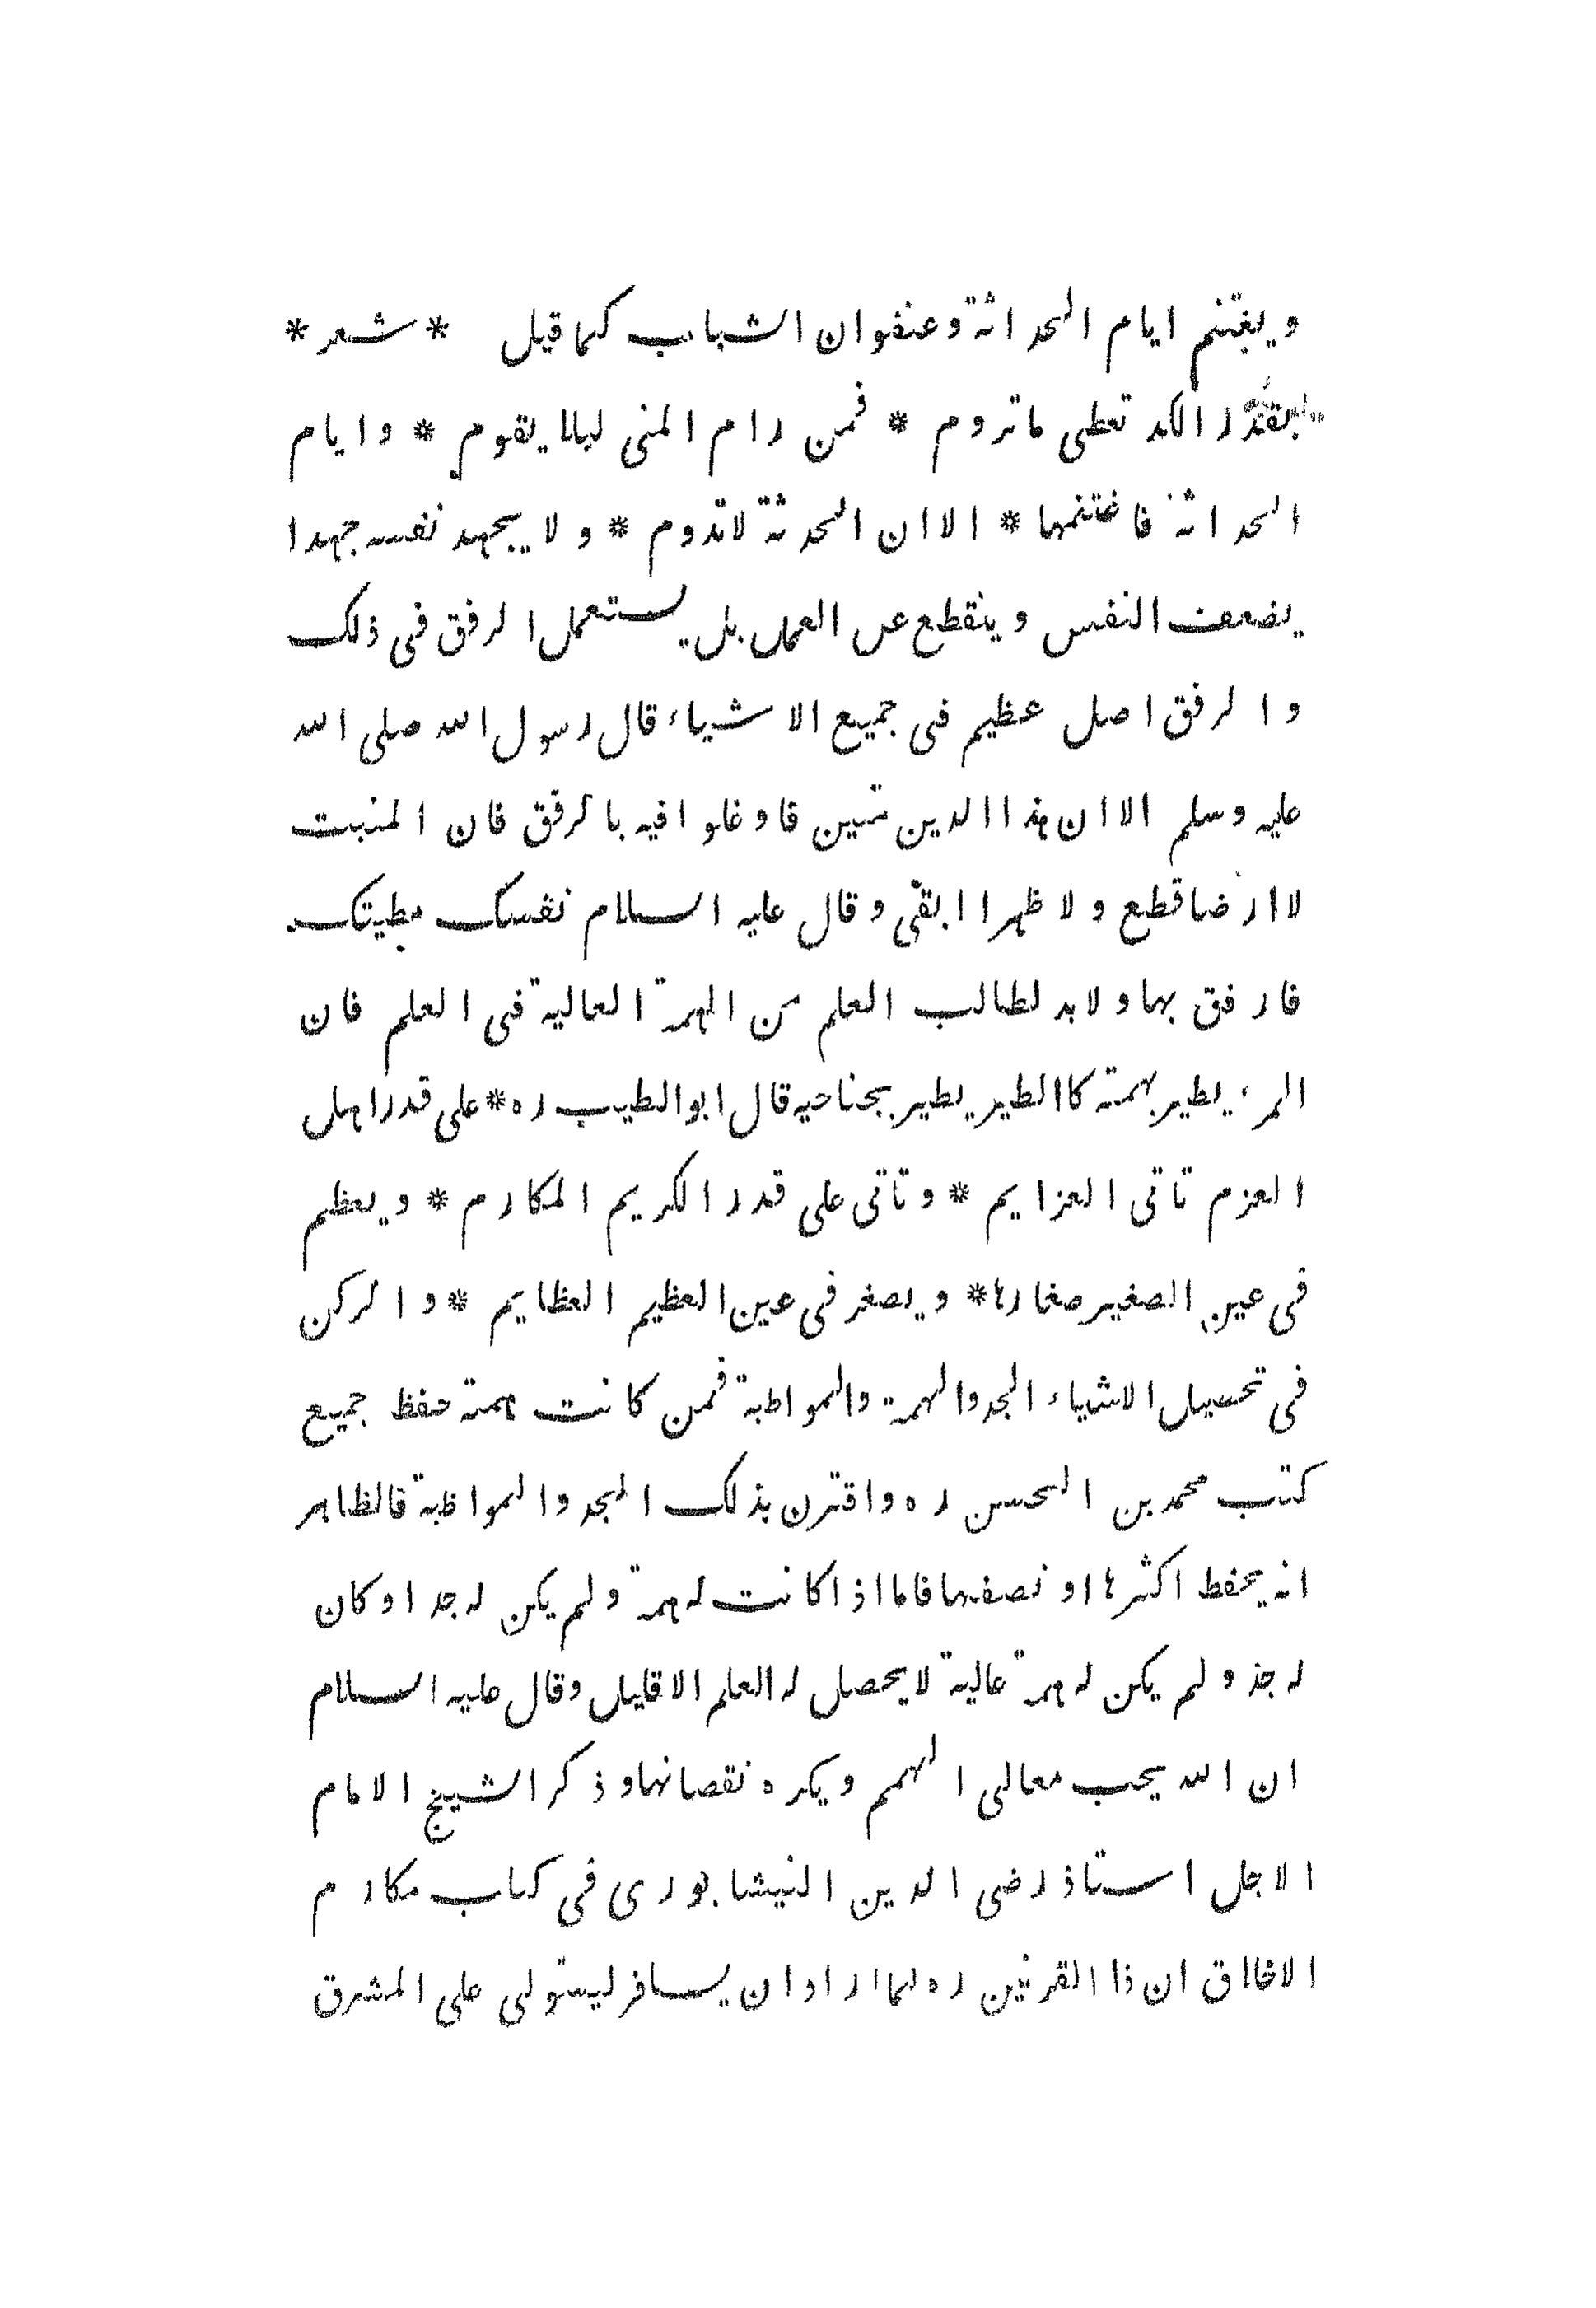 ويغتنم ايام الحداثة وعنفوان الشباب كما قيل * شعر *
بقدر الكد تعطى ماتروم * فمن رام المنى ليلا يقوم * وايام
الحداثة فاغتنمها * الا ان الحدثة لاتدوم * ولا يجهد نفسه جهدا
يضعف النفس وينقطع عن العمل بل يستعمل الرفق فى ذلك
والرفق اصل عظيم فى جميع الاشياء قال رسول الله صلى الله
عليه وسلم الا ان هذا الدين متين فاوغلوا فيه بالرفق فان المنبت
لا ارضا قطع ولا ظهرا ابقى وقال عليه السلام نفسك مطيتك
فارفق بها ولا بد لطالب العلم من الهمة العالية فى العلم فان
المرء يطير بهمته كاالطير يطير بجناحيه قال ابو الطيب ره * على قدر اهل
العزم تاتى العزايم * وتاتى على قدر الكريم المكارم * ويعظم
فى عين الصغير صغارها * ويصغر فى عين العظيم العظايم * والركن
فى تحصيل الاشياء الجد والهمة والمواظبة فمن كانت همته حفظ جميع
كتب محمد بن الحسن ره واقترن بذلك الجد والمواظبة فالظاهر
انه يحفظ اكثرها او نصفها فاما اذا كانت له همة ولم يكن له جد او كان
له جذ ولم يكن له همة عالية لا يحصل له العلم الا قليل وقال عليه السلام
ان الله يحب معالى الهمم ويكره نقصانها وذكر الشيخ الامام
الاجل استاذ رضى الدين النيشابورى فى كتاب مكارم
الاخلاق ان ذا القرنين ره لما اراد ان يسافر ليستولى على المشرق